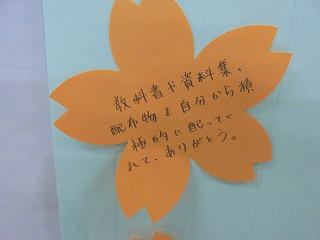 教科書や資料集、
配布物を自分から積
極的に配ってく
れて、ありがとう。